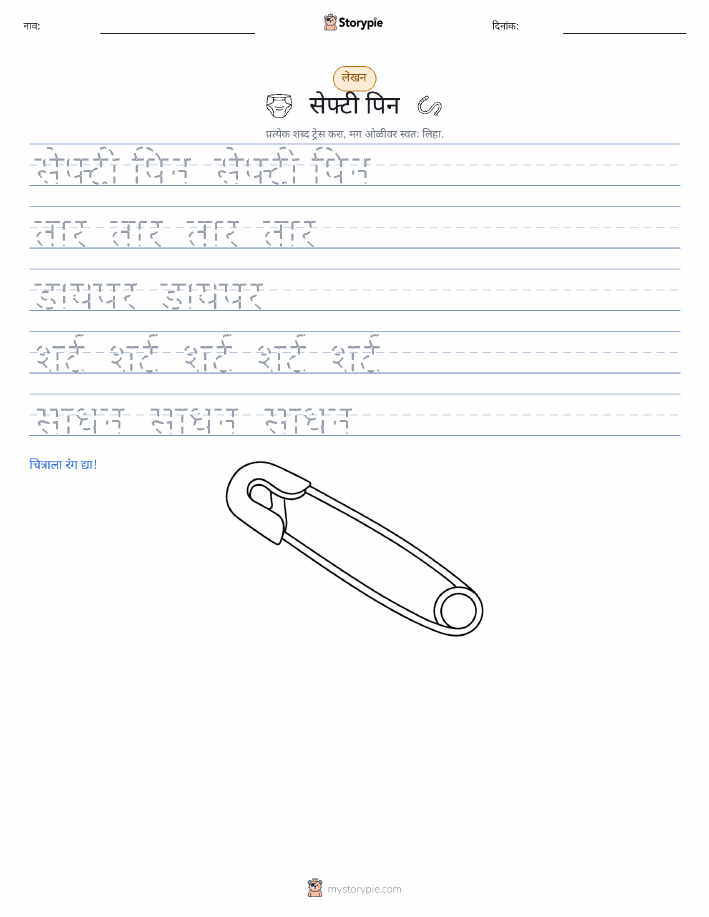 नाव:
Storypie
दिनांक:
लेखन
सेफ्टी पिन
प्रत्येक शब्द ट्रेस करा, मग ओळीवर स्वतः लिहा.
सेफ्टी पिन सेफ्टी पिन
तार तार तार तार
डायपर डायपर
शर्ट शर्ट शर्ट शर्ट शर्ट
साधन साधन साधन
चित्राला रंग द्या!
mystorypie.com